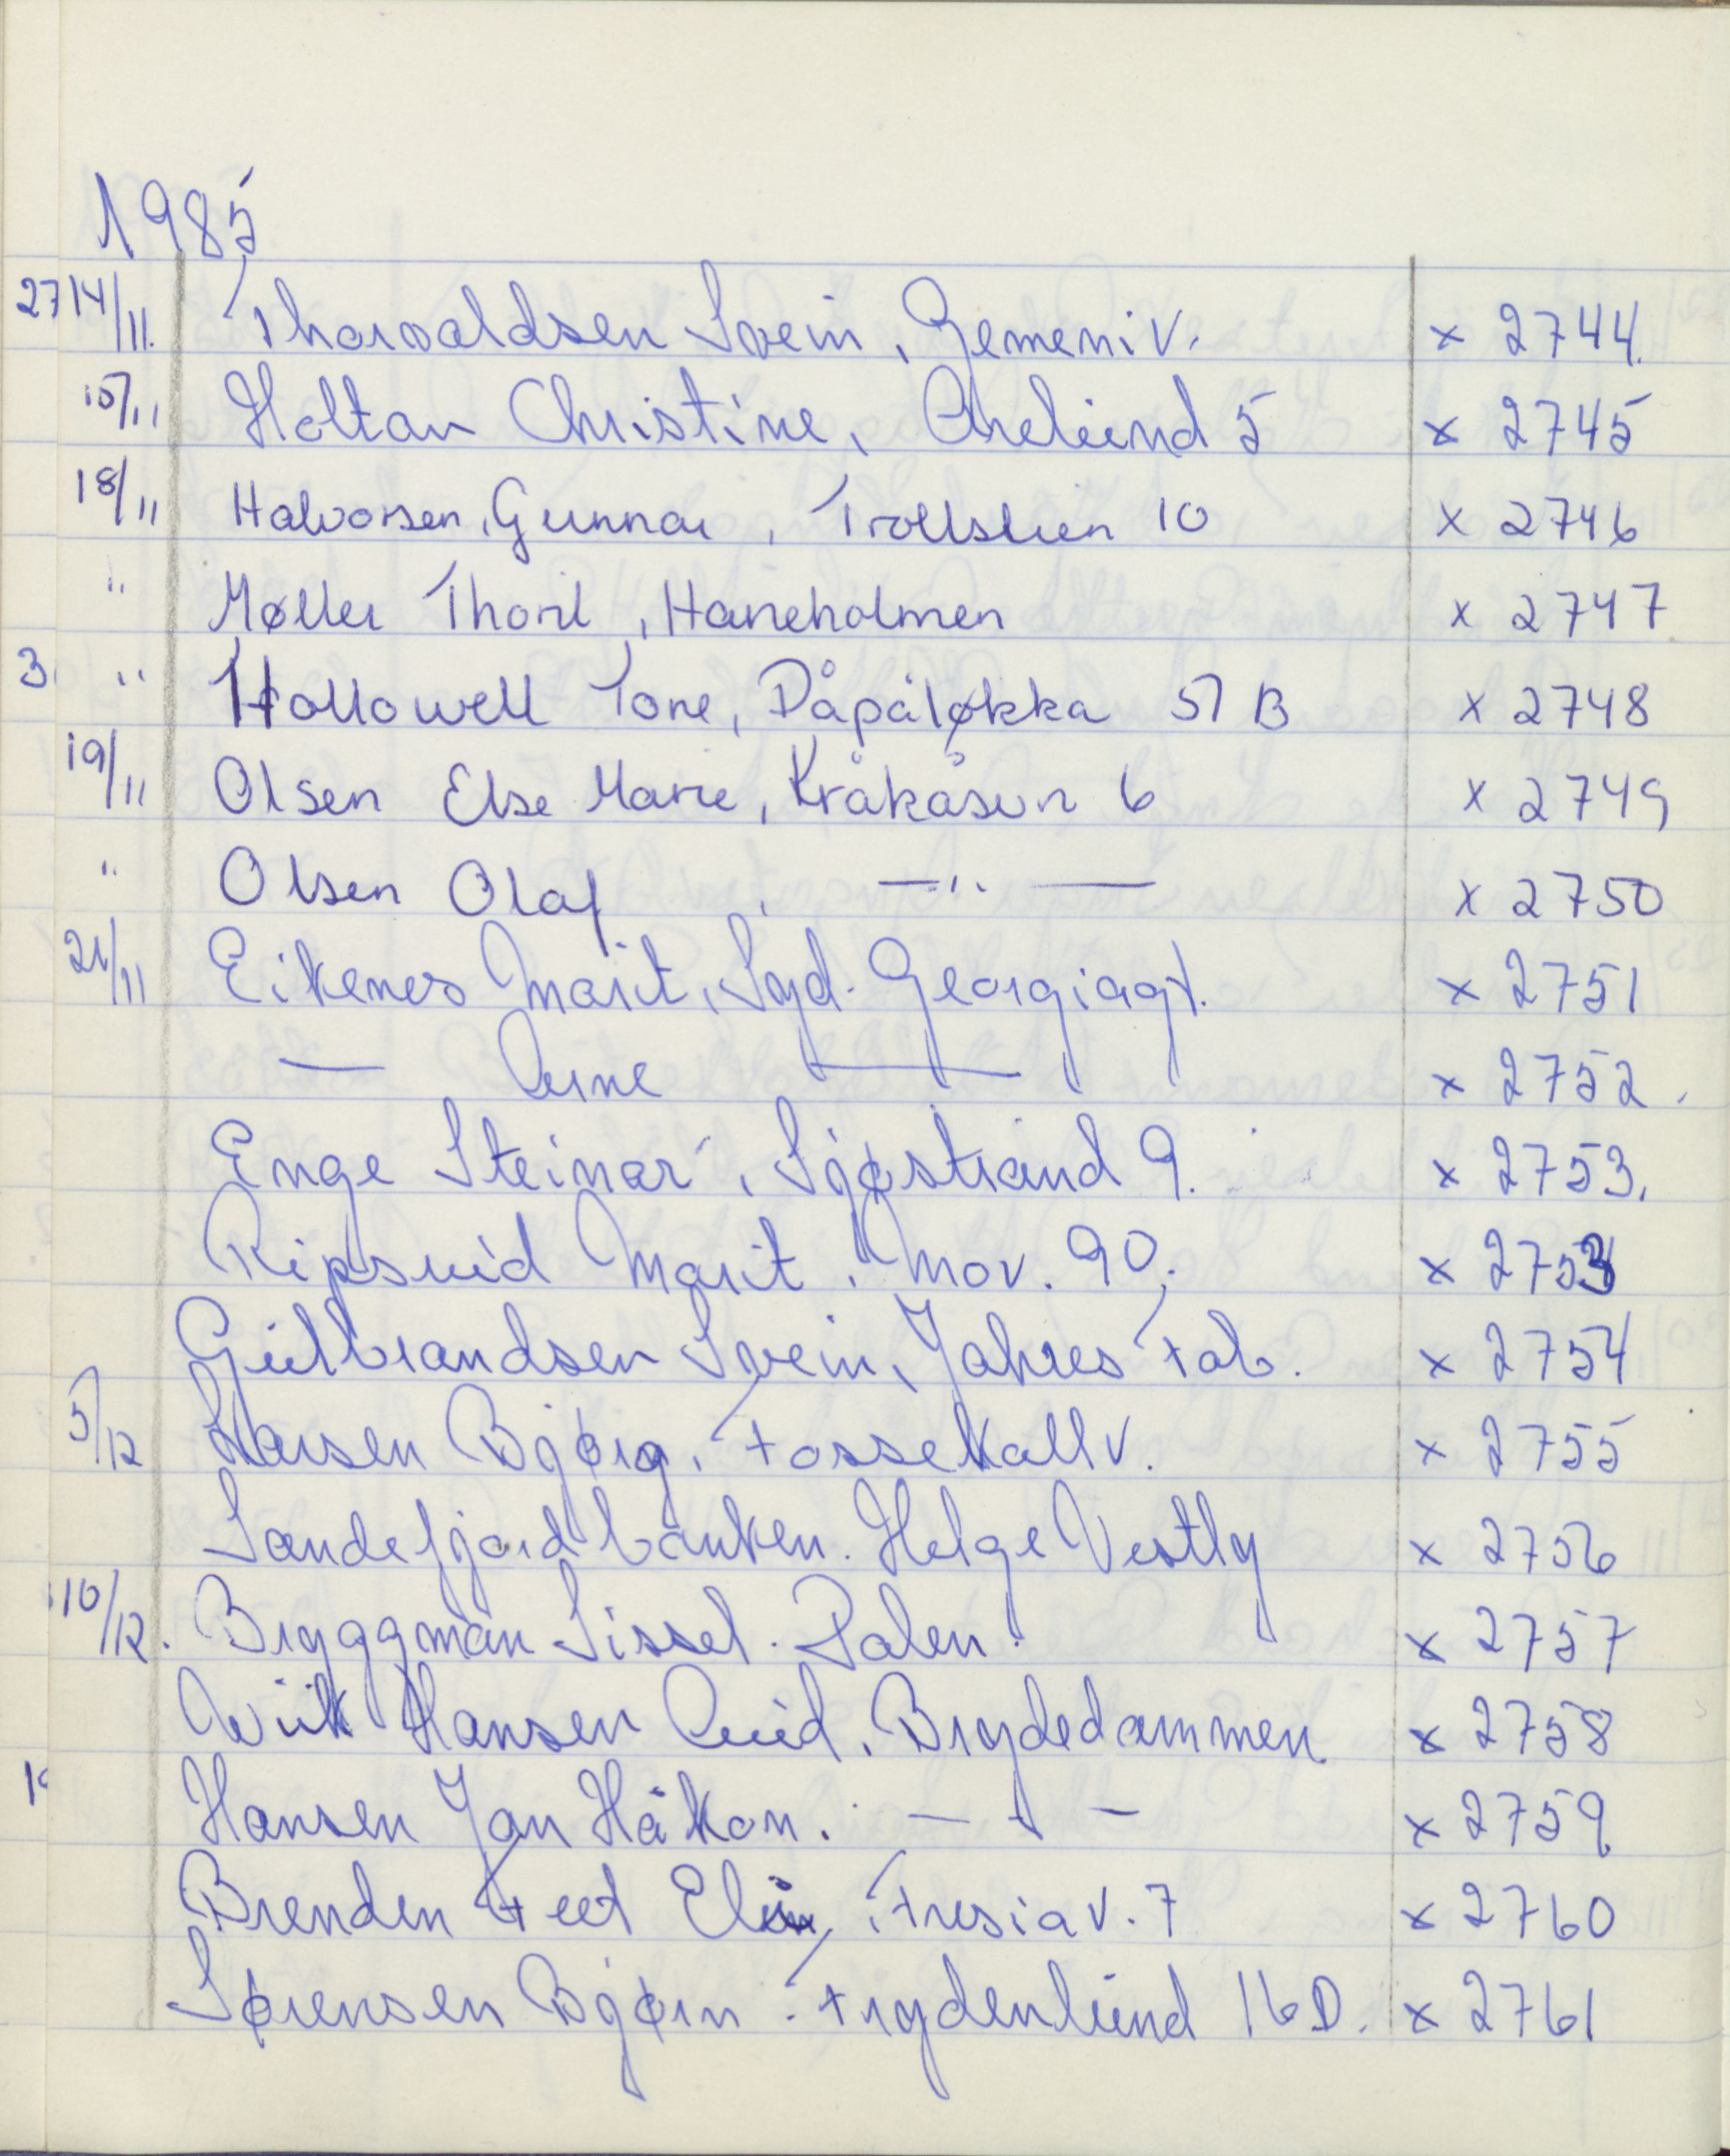 1985
27 14/11. Thorvaldsen Svein, Gemeniv. x 2744.
15/11 Holtan Christine, Axelund 5 x 2745
18/11 Halvorsen, Gunnar, Trollstien 10 x 2746
" Møller Thoril, Haneholmen x 2747
3. " Hollowell Tone, Dåpåløkka 57 B x 2748
19/11 Olsen Else Marie, Kråkåsen 6 x 2749
" Olsen Olaf, —"— x 2750
21/11 Eikenes Marit, Syd. Georgiagt. x 2751
— Arne — x 2752.
Enge Steinar, Sjøstrand 9. x 2753.
Ripsrud Marit, Mov. 90. x 2753
Gulbrandsen Svein, Jahres Fab. x 2754
5/12 Larsen Bjørg, Fossekallv. x 2755
Sandefjordbanken. Helge Vestly x 2756
10/12. Bryggman Sissel. Dalen. x 2757
Wiik Hansen Aud, Brydedammen x 2758
Hansen Jan Håkon. — " — x 2759
Brenden Feet Elin, Fresiav. 7 x 2760
Sørensen Bjørn. Frydenlund 16 D. x 2761